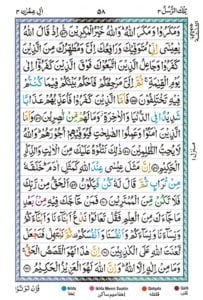 تِلْكَ الرُّسُلُ ٣ ٥٨ اٰلِ عِمْرٰن ٣
وَمَكَرُوْا وَمَكَرَ اللّٰهُ وَاللّٰهُ خَيْرُ الْمٰكِرِيْنَ اِذْ قَالَ اللّٰهُ
يٰعِيْسٰى اِنِّيْ مُتَوَفِّيْكَ وَرَافِعُكَ اِلَيَّ وَمُطَهِّرُكَ مِنَ الَّذِيْنَ
كَفَرُوْا وَجَاعِلُ الَّذِيْنَ اتَّبَعُوْكَ فَوْقَ الَّذِيْنَ كَفَرُوْا اِلٰى
يَوْمِ الْقِيٰمَةِ ثُمَّ اِلَيَّ مَرْجِعُكُمْ فَاَحْكُمُ بَيْنَكُمْ فِيْمَا كُنْتُمْ
فِيْهِ تَخْتَلِفُوْنَ فَاَمَّا الَّذِيْنَ كَفَرُوْا فَاُعَذِّبُهُمْ عَذَابًا
شَدِيْدًا فِي الدُّنْيَا وَالْاٰخِرَةِ وَمَا لَهُمْ مِّنْ نّٰصِرِيْنَ
وَاَمَّا الَّذِيْنَ اٰمَنُوْا وَعَمِلُوا الصّٰلِحٰتِ فَيُوَفِّيْهِمْ اُجُوْرَهُمْ
وَاللّٰهُ لَا يُحِبُّ الظّٰلِمِيْنَ ذٰلِكَ نَتْلُوْهُ عَلَيْكَ مِنَ الْاٰيٰتِ
وَالذِّكْرِ الْحَكِيْمِ اِنَّ مَثَلَ عِيْسٰى عِنْدَ اللّٰهِ كَمَثَلِ اٰدَمَ خَلَقَهٗ
مِنْ تُرَابٍ ثُمَّ قَالَ لَهٗ كُنْ فَيَكُوْنُ اَلْحَقُّ مِنْ رَّبِّكَ فَلَا تَكُنْ
مِّنَ الْمُمْتَرِيْنَ فَمَنْ حَآجَّكَ فِيْهِ مِنْ بَعْدِ مَا جَآءَكَ مِنَ
الْعِلْمِ فَقُلْ تَعَالَوْا نَدْعُ اَبْنَآءَنَا وَاَبْنَآءَكُمْ وَنِسَآءَنَا
وَنِسَآءَكُمْ وَاَنْفُسَنَا وَاَنْفُسَكُمْ ثُمَّ نَبْتَهِلْ فَنَجْعَلْ
لَّعْنَتَ اللّٰهِ عَلَى الْكٰذِبِيْنَ اِنَّ هٰذَا لَهُوَ الْقَصَصُ الْحَقُّ
وَمَا مِنْ اِلٰهٍ اِلَّا اللّٰهُ وَاِنَّ اللّٰهَ لَهُوَ الْعَزِيْزُ الْحَكِيْمُ
Ikhfa Ikhfa Meem Saakin Qalqala